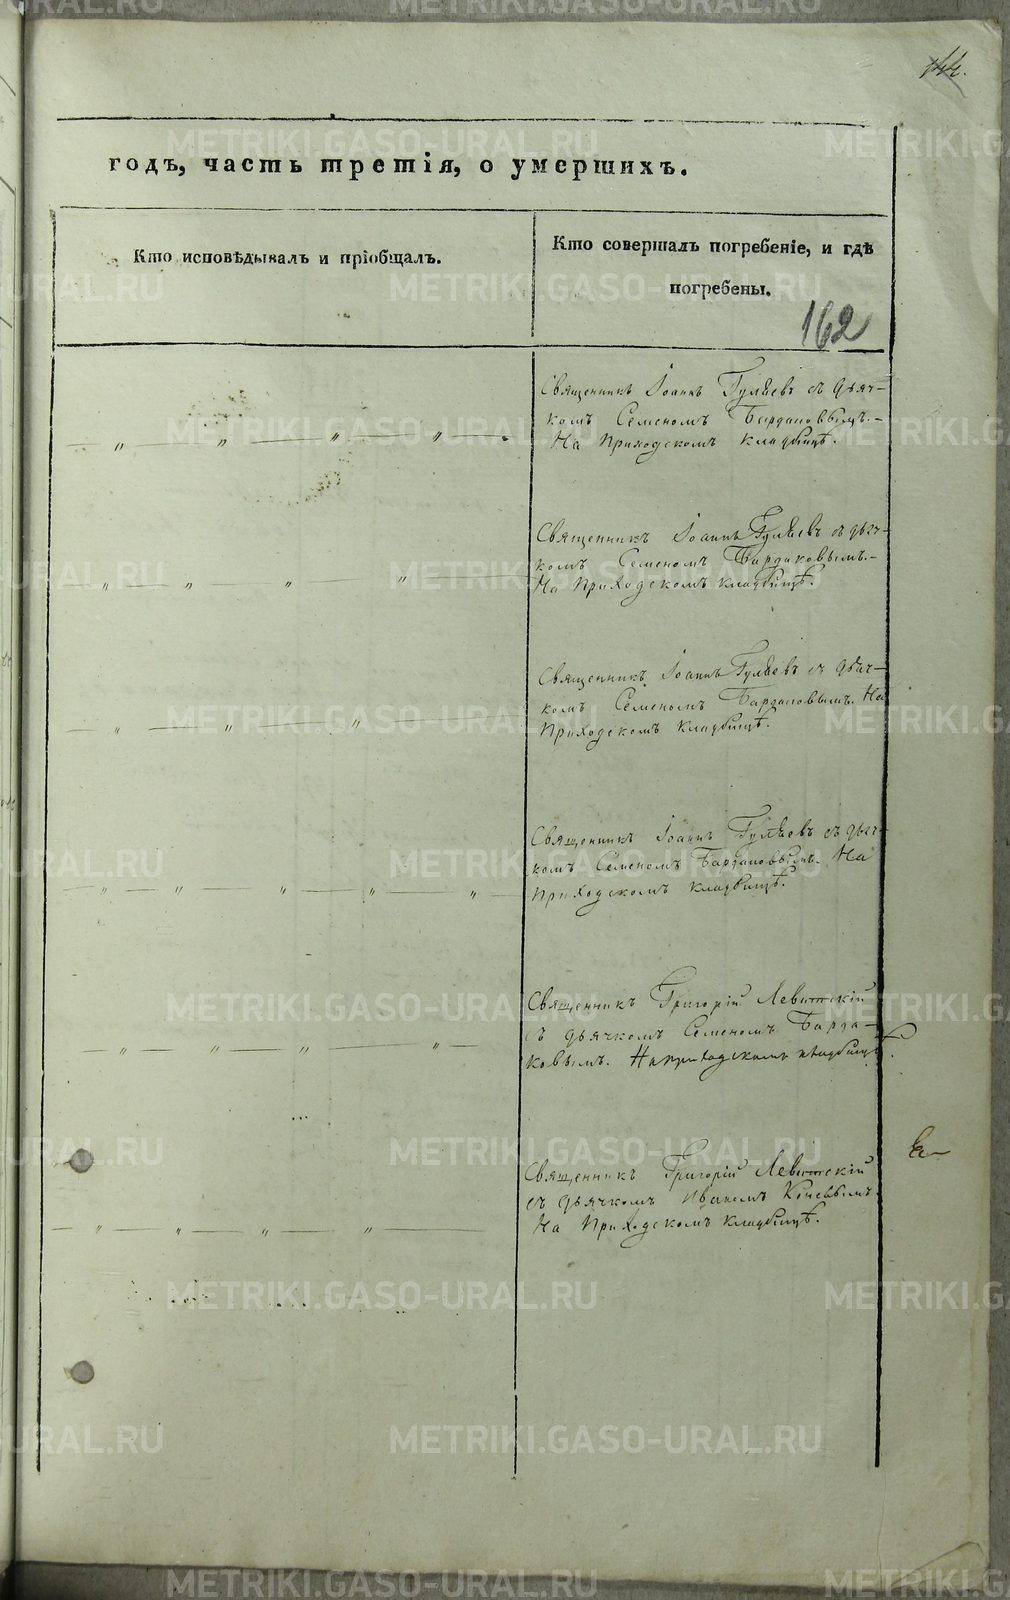 144.
годъ, часть третія, о умершихъ.
Кто исповѣдывалъ и пріобщалъ.
Кто совершалъ погребеніе, и гдѣ
погребены.
162
Священникъ Іоаннъ Гуляевъ съ дьяч-
комъ Семеномъ Бардаковымъ.-
На Приходскомъ кладбищѣ.
Священникъ Іоаннъ Гуляевъ съ дьяч-
комъ Семеномъ Бардаковымъ.-
На Приходскомъ кладбищѣ.
Священникъ Іоаннъ Гуляевъ съ дьяч-
комъ Семеномъ Бардаковымъ. На
Приходскомъ кладбищѣ.
Священникъ Іоаннъ Гуляевъ съ дьяч-
комъ Семеномъ Бардаковымъ. На
Приходскомъ кладбищѣ.
Священникъ Григорій Левитскій
съ дьячкомъ Семеномъ Барда-
ковымъ. На приходскомъ кладбищѣ.
Священникъ Григорій Левитскій
съ дьячкомъ Иваномъ
На Приходскомъ кладбищѣ.
METRIKI.GASO-URAL.RU